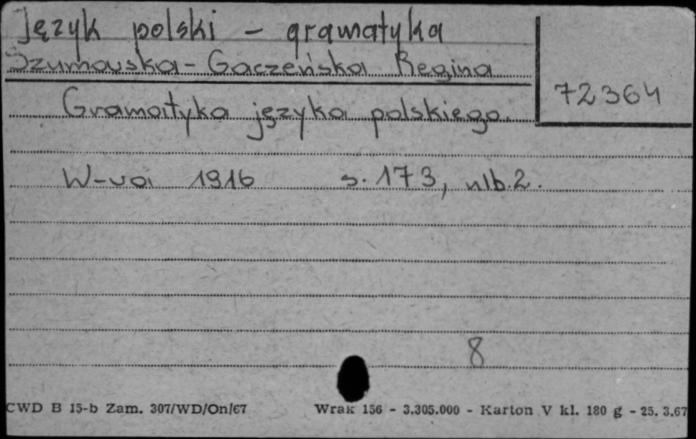 Język polski - gramatyka
Szumowska-Gaczeńska Regina
72364
Gramatyka języka polskiego.
W-wa 1916 s. 173, nlb. 2.
8
CWD B 15-b Zam. 307/WD/On/67 Wrak 156 - 3.305.000 - Karton V kl. 180 g - 25. 3.67